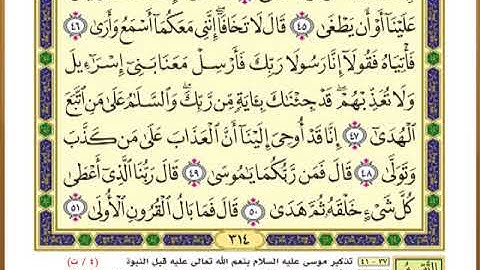 عَلَيْنَآ أَوْ أَن يَطْغَىٰ ٤٥ قَالَ لَا تَخَافَآ إِنَّنِي مَعَكُمَآ أَسْمَعُ وَأَرَىٰ ٤٦
فَأْتِيَاهُ فَقُولَآ إِنَّا رَسُولَا رَبِّكَ فَأَرْسِلْ مَعَنَا بَنِيٓ إِسْرَٰٓءِيلَ
وَلَا تُعَذِّبْهُمْ ۖ قَدْ جِئْنَٰكَ بِـَٔايَةٍ مِّن رَّبِّكَ ۖ وَٱلسَّلَٰمُ عَلَىٰ مَنِ ٱتَّبَعَ
ٱلْهُدَىٰٓ ٤٧ إِنَّا قَدْ أُوحِيَ إِلَيْنَآ أَنَّ ٱلْعَذَابَ عَلَىٰ مَن كَذَّبَ
وَتَوَلَّىٰ ٤٨ قَالَ فَمَن رَّبُّكُمَا يَٰمُوسَىٰ ٤٩ قَالَ رَبُّنَا ٱلَّذِيٓ أَعْطَىٰ
كُلَّ شَيْءٍ خَلْقَهُۥ ثُمَّ هَدَىٰ ٥٠ قَالَ فَمَا بَالُ ٱلْقُرُونِ ٱلْأُولَىٰ ٥١
٣١٤
٣٧ - ٤١ تذكير موسى عليه السلام بنعم الله تعالى عليه قبل النبوة (٤ / ت)